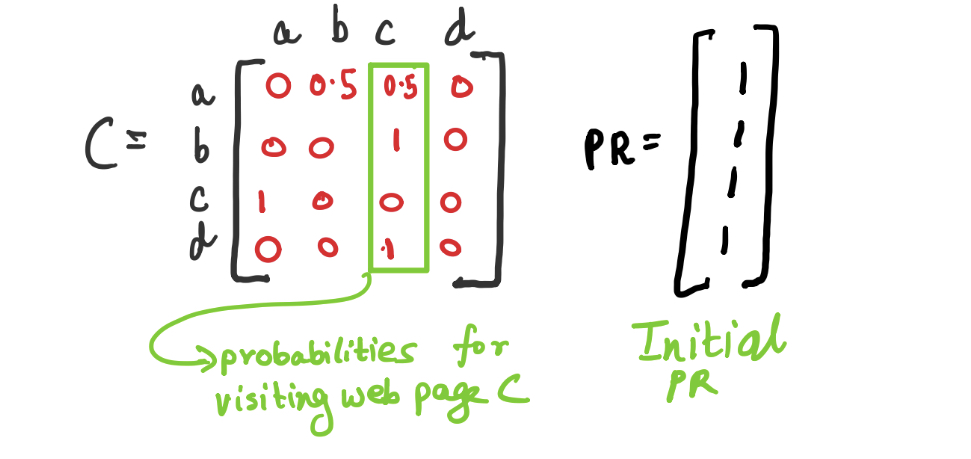 a b c d
a 0 0.5 0.5 0
C = b 0 0 1 0
c 1 0 0 0
d 0 0 1 0
PR = 1
1
1
1
probabilities for
visiting web page C
Initial
PR